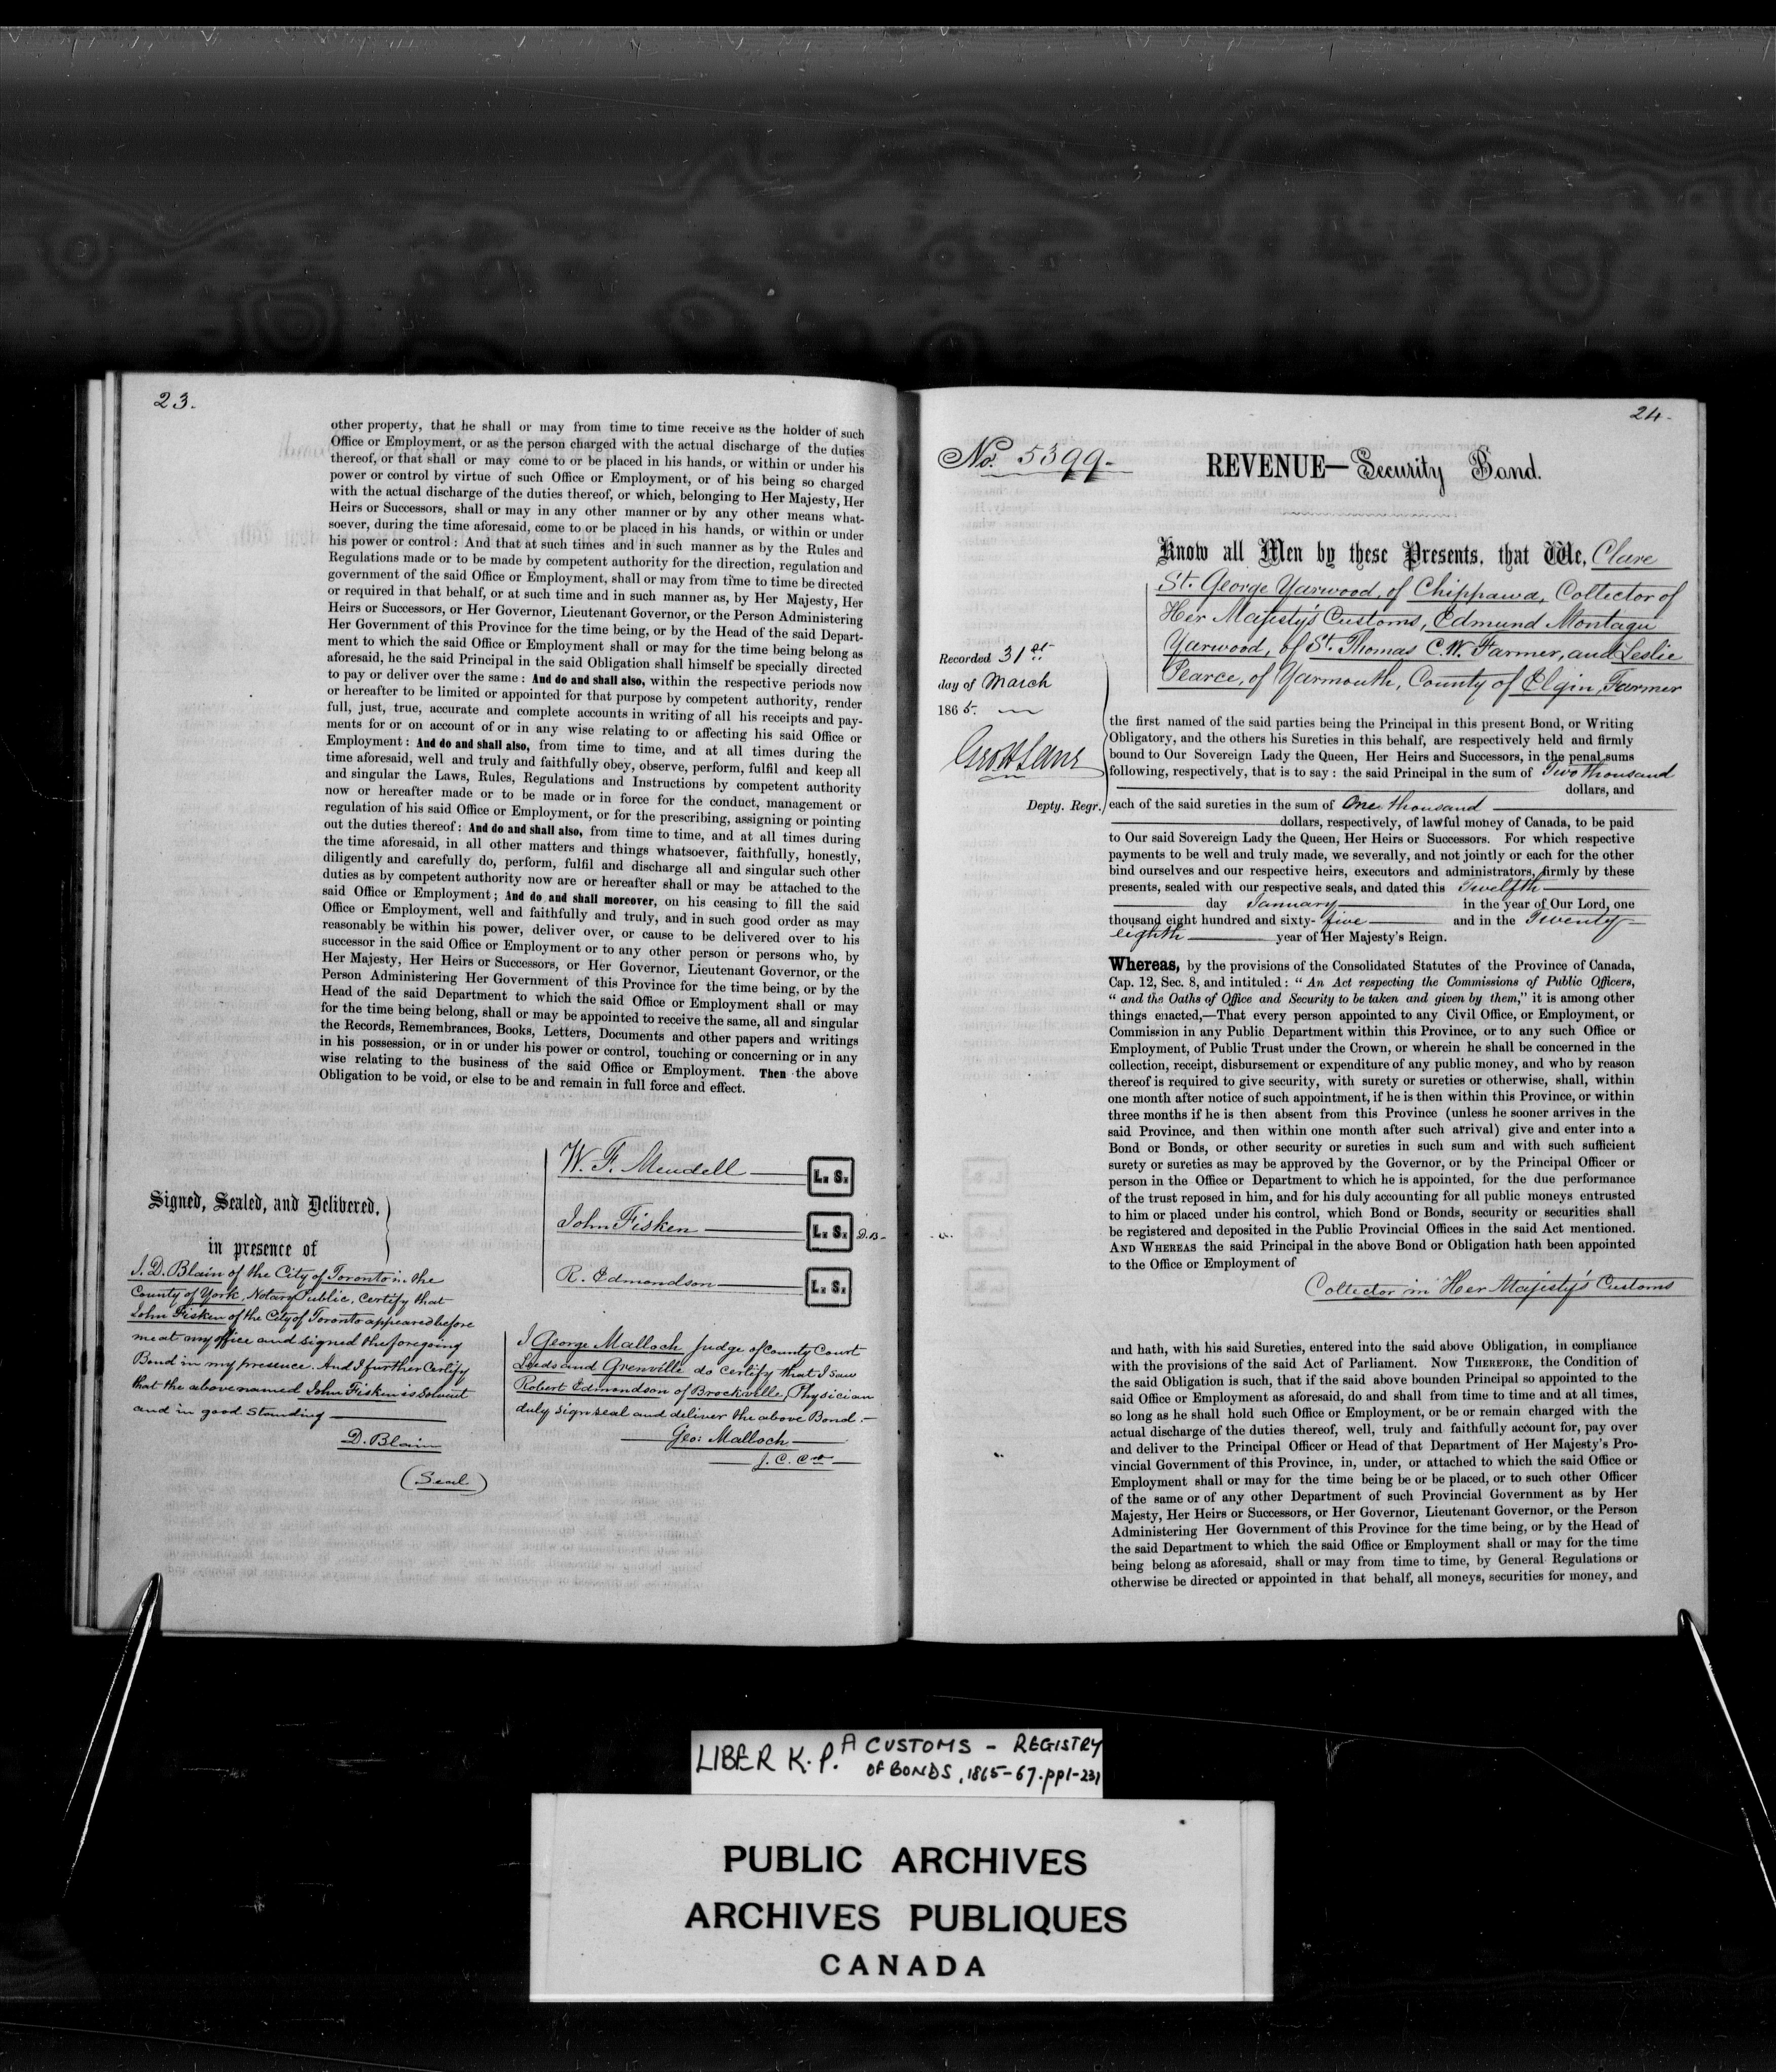 23.
other property, that he shall or may from time to time receive as the holder of such
Office or Employment, or as the person charged with the actual discharge of the duties
thereof, or that shall or may come to or be placed in his hands, or within or under his
power or control by virtue of such Office or Employment, or of his being so charged
with the actual discharge of the duties thereof, or which, belonging to Her Majesty, Her
Heirs or Successors, shall or may in any other manner or by any other means what-
soever, during the time aforesaid, come to or be placed in his hands, or within or under
his power or control : And that at such times and in such manner as by the Rules and
Regulations made or to be made by competent authority for the direction, regulation and
government of the said Office or Employment, shall or may from time to time be directed
or required in that behalf, or at such time and in such manner as, by Her Majesty, Her
Heirs or Successors, or Her Governor, Lieutenant Governor, or the Person Administering
Her Government of this Province for the time being, or by the Head of the said Depart-
ment to which the said Office or Employment shall or may for the time being belong as
aforesaid, he the said Principal in the said Obligation shall himself be specially directed
to pay or deliver over the same : And do and shall also, within the respective periods now
or hereafter to be limited or appointed for that purpose by competent authority, render
full, just, true, accurate and complete accounts in writing of all his receipts and pay-
ments for or on account of or in any wise relating to or affecting his said Office or
Employment : And do and shall also, from time to time, and at all times during the
time aforesaid, well and truly and faithfully obey, observe, perform, fulfil and keep all
and singular the Laws, Rules, Regulations and Instructions by competent authority
now or hereafter made or to be made or in force for the conduct, management or
regulation of his said Office or Employment, or for the prescribing, assigning or pointing
out the duties thereof : And do and shall also, from time to time, and at all times during
the time aforesaid, in all other matters and things whatsoever, faithfully, honestly,
diligently and carefully do, perform, fulfil and discharge all and singular such other
duties as by competent authority now are or hereafter shall or may be attached to the
said Office or Employment ; And do and shall moreover, on his ceasing to fill the said
Office or Employment, well and faithfully and truly, and in such good order as may
reasonably be within his power, deliver over, or cause to be delivered over to his
successor in the said Office or Employment or to any other person or persons who, by
Her Majesty, Her Heirs or Successors, or Her Governor, Lieutenant Governor, or the
Person Administering Her Government of this Province for the time being, or by the
Head of the said Department to which the said Office or Employment shall or may
for the time being belong, shall or may be appointed to receive the same, all and singular
the Records, Remembrances, Books, Letters, Documents and other papers and writings
in his possession, or in or under his power or control, touching or concerning or in any
wise relating to the business of the said Office or Employment. Then the above
Obligation to be void, or else to be and remain in full force and effect.
W. F. Mendell L. S.
John Fisken L. S. D.B.
R. Edmondson L. S.
Signed, Sealed, and Delivered,
in presence of
I. D. Blain of the City of Toronto in the
County of York, Notary Public, certify that
John Fisken of the City of Toronto appeared before
me at my office and signed the foregoing
Bond in my presence. And I further Certify
that the above named John Fisken is Solvent
and in good Standing
D. Blain
(Seal)
I George Malloch Judge of County Court
Leeds and Grenville do certify that I saw
Robert Edmondson of Brockville, Physician
duly sign seal and deliver the above Bond.-
Geo: Malloch
J. C. Ct
24.
No. 5399.
REVENUE—Security Bond.
Know all Men by these Presents, that We, Clare
St. George Yarwood, of Chippawa, Collector of
Her Majesty's Customs, Edmund Montagu
Yarwood, of St. Thomas C.W. Farmer, and Leslie
Pearce, of Yarmouth, County of Elgin, Farmer
Recorded 31st
day of March
1865.
Depty. Regr.
the first named of the said parties being the Principal in this present Bond, or Writing
Obligatory, and the others his Sureties in this behalf, are respectively held and firmly
bound to Our Sovereign Lady the Queen, Her Heirs and Successors, in the penal sums
following, respectively, that is to say : the said Principal in the sum of Two thousand
dollars, and
each of the said sureties in the sum of One thousand
dollars, respectively, of lawful money of Canada, to be paid
to Our said Sovereign Lady the Queen, Her Heirs or Successors. For which respective
payments to be well and truly made, we severally, and not jointly or each for the other
bind ourselves and our respective heirs, executors and administrators, firmly by these
presents, sealed with our respective seals, and dated this Twelfth
day January in the year of Our Lord, one
thousand eight hundred and sixty-five and in the Twenty
eighth year of Her Majesty's Reign.
Whereas, by the provisions of the Consolidated Statutes of the Province of Canada,
Cap. 12, Sec. 8, and intituled : " An Act respecting the Commissions of Public Officers,
" and the Oaths of Office and Security to be taken and given by them," it is among other
things enacted,—That every person appointed to any Civil Office, or Employment, or
Commission in any Public Department within this Province, or to any such Office or
Employment, of Public Trust under the Crown, or wherein he shall be concerned in the
collection, receipt, disbursement or expenditure of any public money, and who by reason
thereof is required to give security, with surety or sureties or otherwise, shall, within
one month after notice of such appointment, if he is then within this Province, or within
three months if he is then absent from this Province (unless he sooner arrives in the
said Province, and then within one month after such arrival) give and enter into a
Bond or Bonds, or other security or sureties in such sum and with such sufficient
surety or sureties as may be approved by the Governor, or by the Principal Officer or
person in the Office or Department to which he is appointed, for the due performance
of the trust reposed in him, and for his duly accounting for all public moneys entrusted
to him or placed under his control, which Bond or Bonds, security or securities shall
be registered and deposited in the Public Provincial Offices in the said Act mentioned.
AND WHEREAS the said Principal in the above Bond or Obligation hath been appointed
to the Office or Employment of
Collector in Her Majesty's Customs
and hath, with his said Sureties, entered into the said above Obligation, in compliance
with the provisions of the said Act of Parliament. NOW THEREFORE, the Condition of
the said Obligation is such, that if the said above bounden Principal so appointed to the
said Office or Employment as aforesaid, do and shall from time to time and at all times,
so long as he shall hold such Office or Employment, or be or remain charged with the
actual discharge of the duties thereof, well, truly and faithfully account for, pay over
and deliver to the Principal Officer or Head of that Department of Her Majesty's Pro-
vincial Government of this Province, in, under, or attached to which the said Office or
Employment shall or may for the time being be or be placed, or to such other Officer
of the same or of any other Department of such Provincial Government as by Her
Majesty, Her Heirs or Successors, or Her Governor, Lieutenant Governor, or the Person
Administering Her Government of this Province for the time being, or by the Head of
the said Department to which the said Office or Employment shall or may for the time
being belong as aforesaid, shall or may from time to time, by General Regulations or
otherwise be directed or appointed in that behalf, all moneys, securities for money, and
LIBER K.P. A CUSTOMS - REGISTRY
OF BONDS, 1865-67. pp1-231
PUBLIC ARCHIVES
ARCHIVES PUBLIQUES
CANADA